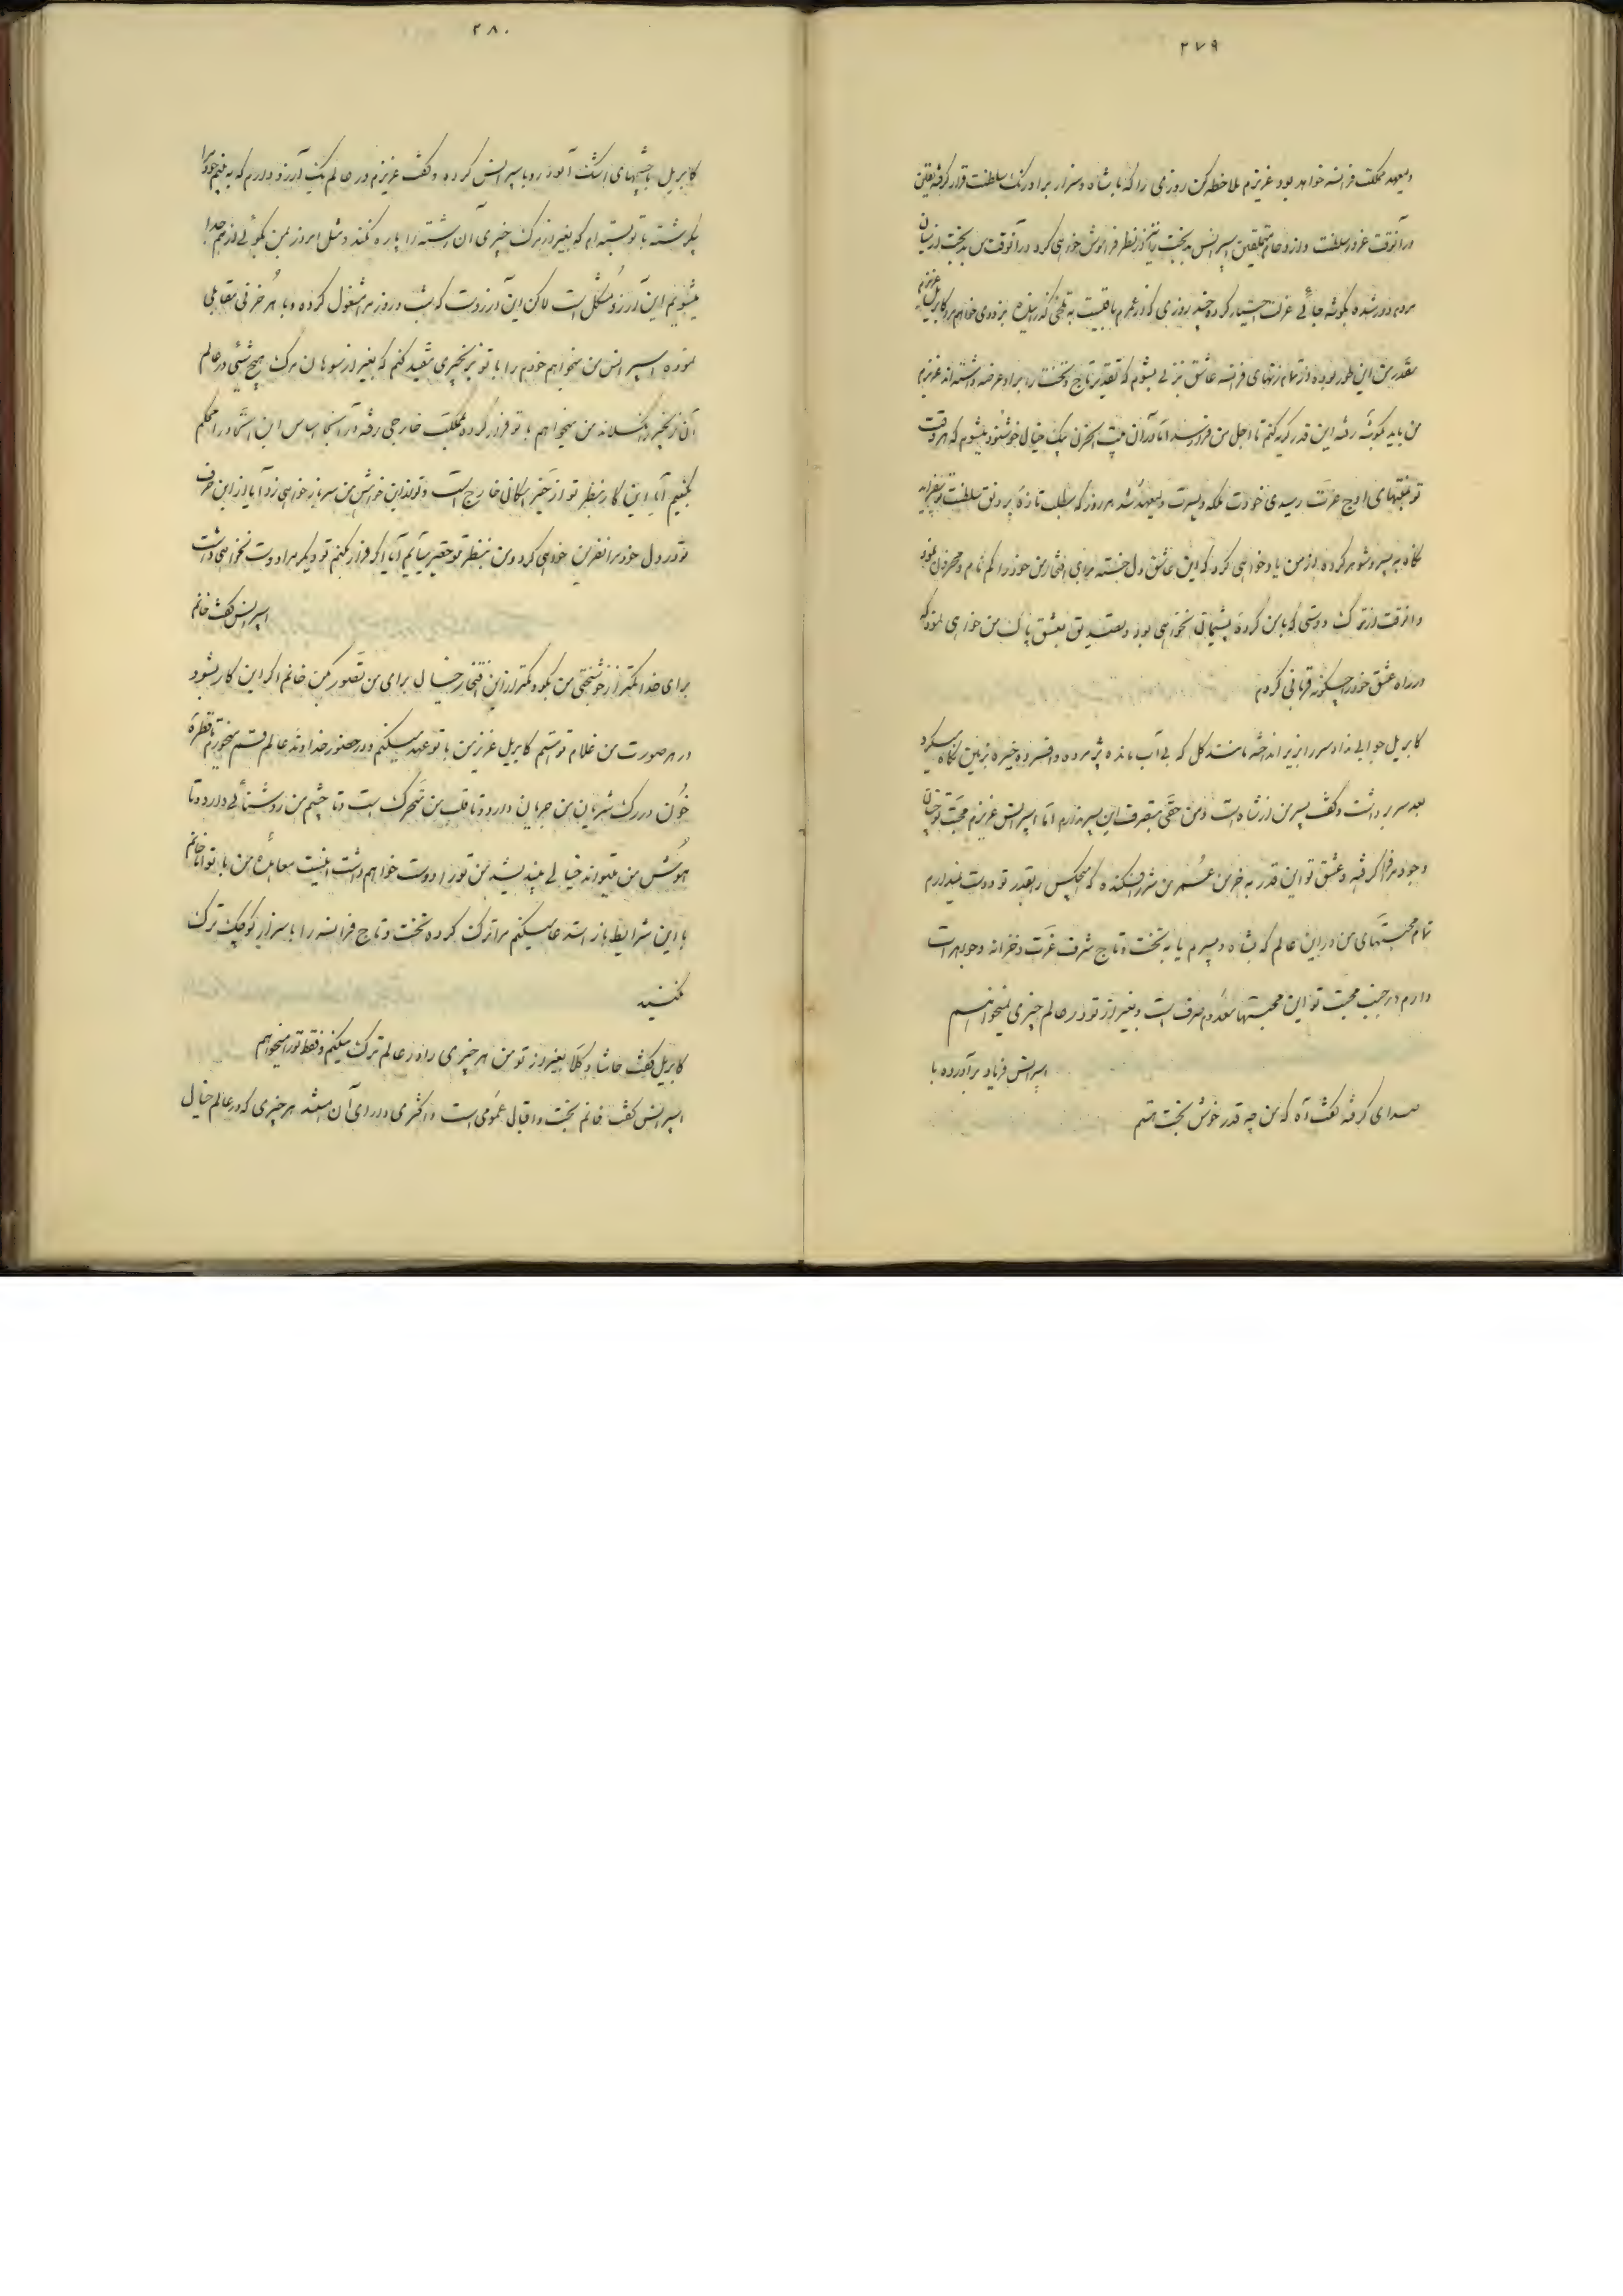 ۲۷۹
ولیعهد مملکت فرانسه خواهد بود عزیزم ملاحظه کن روزی را که با شاه و سزار برادرنک سلطنت قرار گرفته یقین
در آنوقت غرور سلطنت و ازدحام متملقین اسپرانس بدبخت را از نظر فراموش خواهی کرد در آنوقت من بدبخت از میان
مردم دور شده بگوشه جائی عزلت اختیار کرده چند روزی که از عمرم باقیست به تلخی گذرانیده بزودی خواهم مرد کابریل عزیزم
مقدر من این طور بوده از تمام زنهای فرانسه عاشق زنی بشوم که تقدیر تاج و تخت را برای او عرضه داشته اند عزیزم
من باید بگوشه رفته این قدر گریه کنم تا اجل من فرا رسد اما در آن بیت الحزن بیک خیال خوشنود میشوم که هر وقت
تو بمنتهای اوج عزت رسیدی خودت ملکه و پسرت ولیعهد شد هر روز که مطلب تازه بر رونق سلطنت تو بیفزاید
نگاه به پسر و شوهر کرده از من یاد خواهی کرد که این عاشق دل خسته برای افتخار من خود را گم نام و محزون نمود
و آنوقت از ترک دوستی که با من کرده پشیمان نخواهی بود و تصدیق بعشق پاک من خواهی نمود که
در راه عشق خود را چگونه قربانی کردم
کابریل جوابی نداد سر را بزیر انداخته مانند گل که بی آب مانده پژمرده و افسرده خیره بزمین نگاه میکرد
بعد سر برداشت و گفت پسر من از شاه است و من حقی بتصرف این پسر ندارم اما اسپرانس عزیزم محبت تو چنان
وجود مرا فرا گرفته و عشق تو این قدر به خرمن عمر من شرر افکنده که هیچکس را بقدر تو دوست نمیدارم
تمام محبتهای من در این عالم که بشاه و پسرم یا به تخت و تاج شرف عزت و خزانه و جواهرات
دارم در جنب محبت تو این محبتها معدوم صرف است و بغیر از تو در عالم چیزی نمیخواهم
اسپرانس فریاد برآورده با
صدای گرفته گفت آه که من چه قدر خوش بخت هستم
۲۸۰
کابریل با چشمهای اشک آلود رو باسپرانس کرده و گفت عزیزم در عالم یک آرزو دارم که به بینم خود را
بیک رشته با تو بسته ام که بغیر از مرگ چیزی آن رشته را پاره نکند و مثل امروز بمن نگوئی از هم جدا
میشویم این آرزو مشکل است لاکن این آرزوست که شب و روز مرا مشغول کرده و با هر خرفی مقابلی
نموده اسپرانس من میخواهم خودم را با تو بزنجیری مقید کنم که بغیر از سوهان مرگ هیچ شیئی در عالم
آن زنجیر را نگسلاند من میخواهم با تو فرار کرده بمملکت خارجی رفته در آنجا اساس این اتحاد را محکم
بکنیم آیا این کار بنظر تو از حیز امکانی خارج است و تو از این خواهش من سر باز خواهی زد آیا از این حرف
تو در دل خود مرا نفرین خواهی کرد و من بنظر تو حقیر میآیم آیا اگر فرار بکنم تو دیگر مرا دوست نخواهی داشت
اسپرانس گفت خانم
برای خدا کمتر از خوشبختی من بگو و کمتر از این افتخار خیال برای من تصور مکن خانم اگر این کار بشود
در هر صورت من غلام تو هستم کابریل عزیز من با تو عهد میکنم و در حضور خداوند عالم قسم میخورم تا قطره
خون در رگ شریان من جریان دارد و تا قلب من متحرک است و تا چشم من روشنائی دارد و تا
هوش من میتواند خیالی بیندیشد من تو را دوست خواهم داشت اینست معاهده من با تو اما خانم
با این شرایط باز استدعا میکنم مرا ترک کرده تخت و تاج فرانسه را با سزار کوچک ترک
نکنید
کابریل گفت حاشا و کلا بغیر از تو من هر چیزی را در عالم ترک میکنم و فقط تو را میخواهم
اسپرانس گفت خانم بخت و اقبال عمومی است و اکثری دارای آن میشد هر چیزی که در عالم خیال